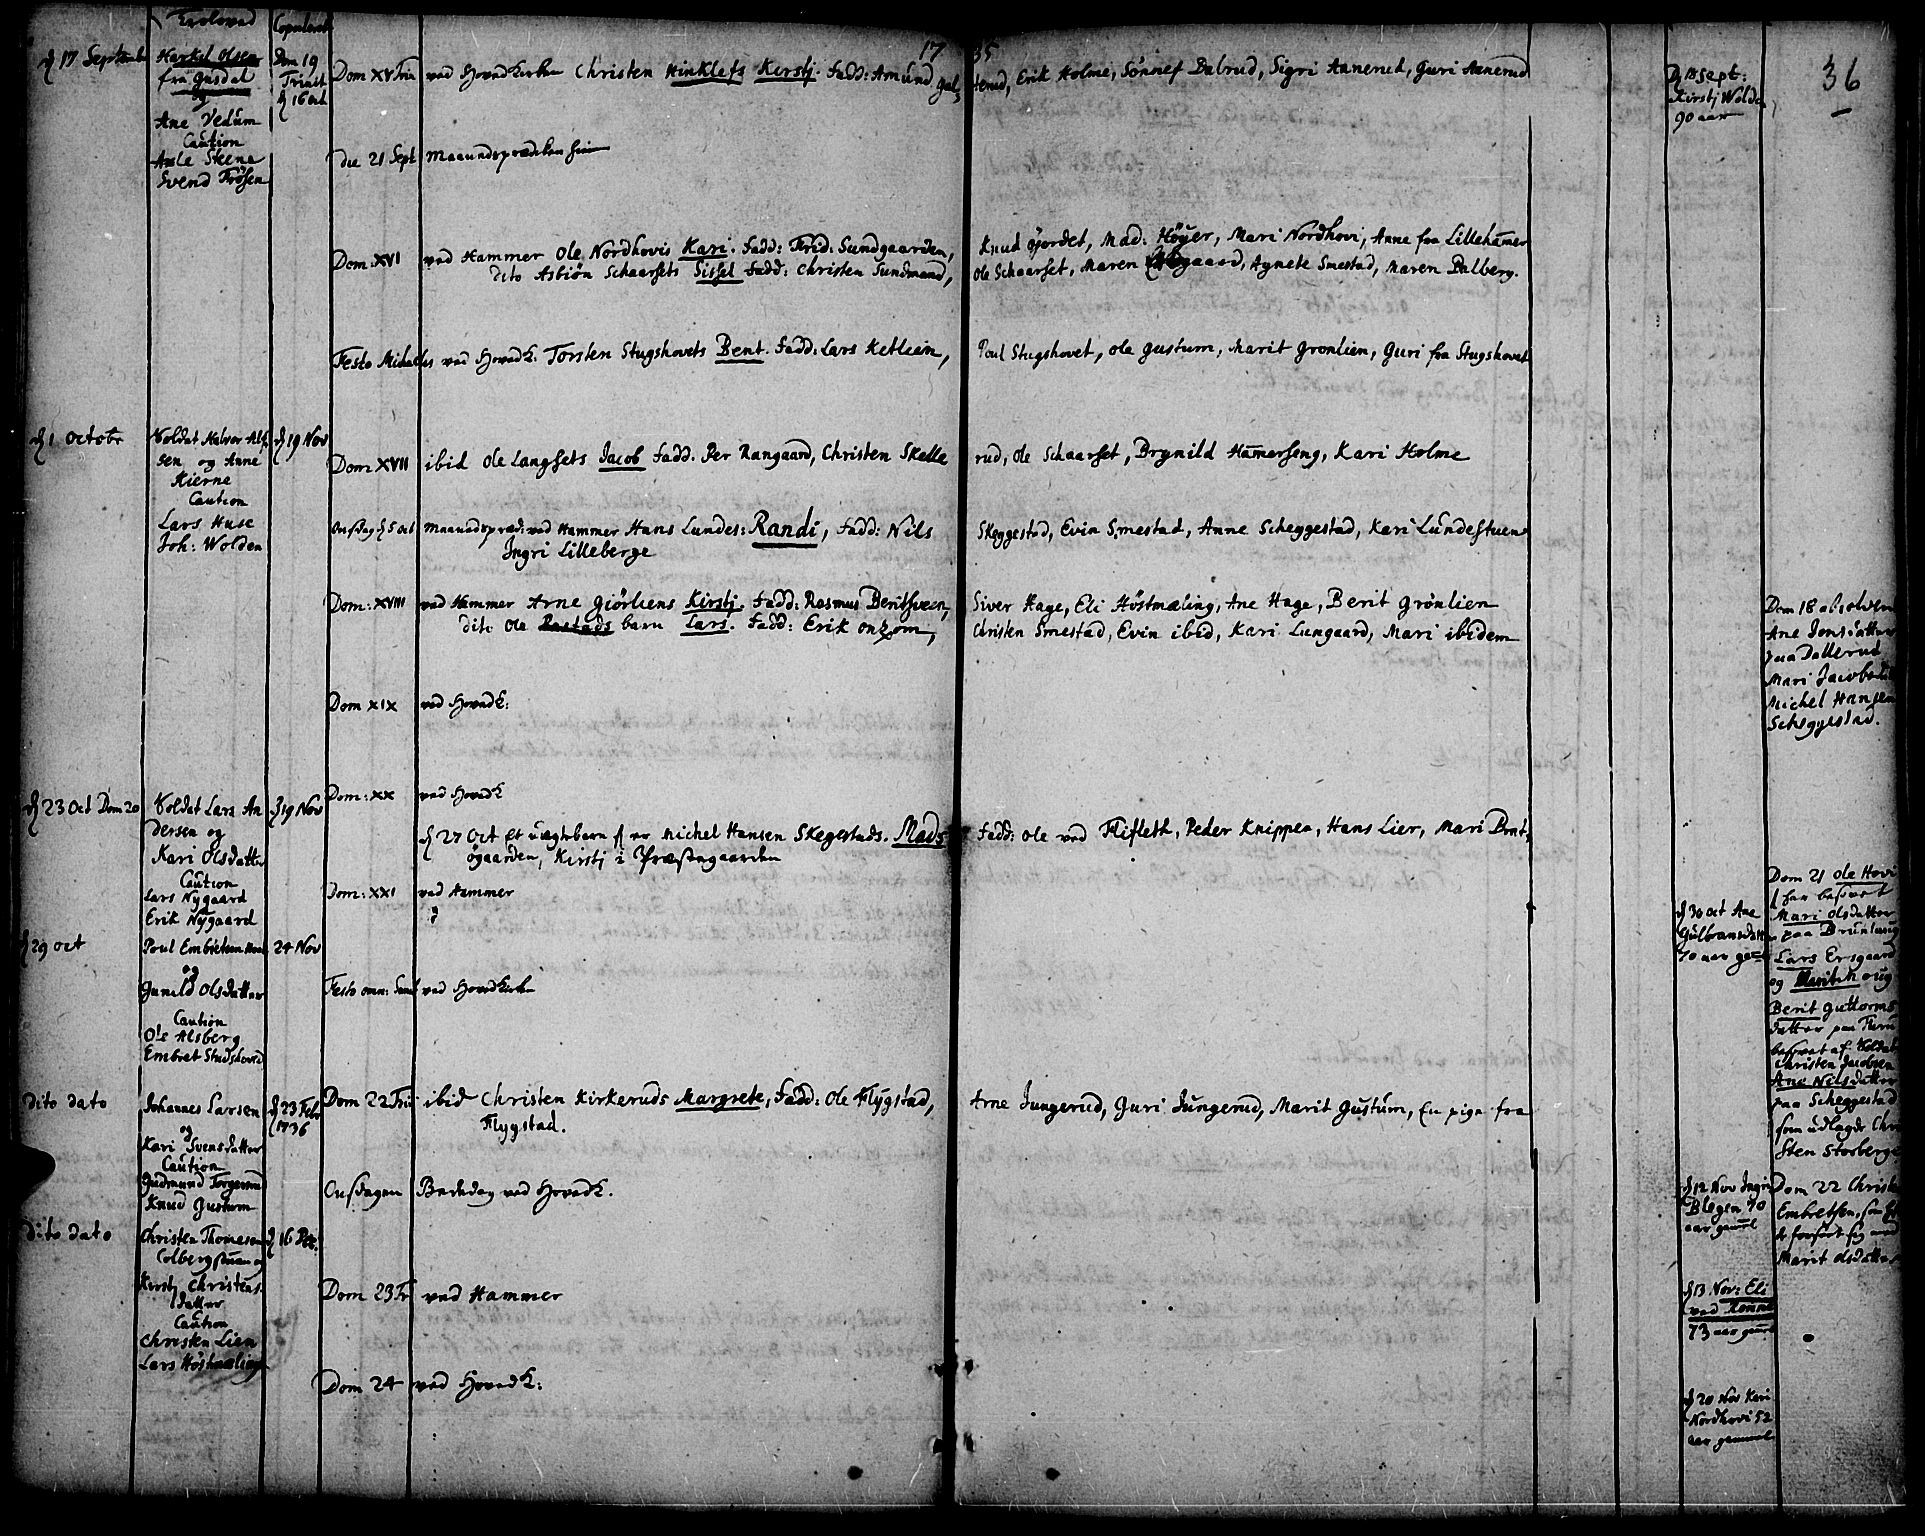 Trolovede
Copulerede
1735
36
d 17 September
Herkel Olsen
fra Gusdal
og
Ane Vedum
Caution
Axle Steene
Svend Frösen
Dom 19
Trinit
d 16 oct
Dom XV Trin ved Hovedkirken Christen Hinklefs Kirstj. fadd: Amund Gul,terud, Erik Holme, Sönnef Dalrud, Sigri Aanerud, Guri Aanerud
d 18 Sept:
Kirstj Wolden
90 aar
die 21 Sept Maanedsprædiken
Dom: XVI ved Hammer Ole Nordhovis Kari. fadd: Frid: Sundgaarden, Knud Gjordet, Mad: Höyer, Mari Nordhovi, Anne fra Lillehamer
dito Asbiön Schaarsets Sissel fadd: Christen Sundmand, Ole Schaarset, Maren Aagaard, Agnete Smestad, Maren Dalberg.
Festo Michaelis ved Hovedk: Torsten Stugshovets Bent. fadd: Lars Ketleien, Poul Stugshovet, Ole Gustum, Marit Gronlien, Guri fra Stugshovet
d 1 Octobr
Soldat Halvor Alf
sen og Anne
Kierne
Caution
Lars Huse
Joh: Wolden
d 19 Nov
Dom: XVII ibid Ole Langsets Jacob fadd. Per Rangaard, Christen Skellerud, Ole Schaarset, Brynild Hamerseng, Kari Holme
Onsdag d 5 oct Maanedspræd: ved Hammer Hans Lundes: Randi, fadd: Nils Skeggestad, Evin Smestad, Anne Scheggestad, Kari Lundestuen
Ingri Lilleberge
Dom: XVIII ved Hammer Arne Giörliens Kirstj. fadd: Rasmus Beritsveen, Siver Hage, Eli Höstmæling, Ane Hage, Berit Grönlien
dito Ole Rustads barn Lars. fadd: Erik onzom, Christen Smestad, Evin ibid, Kari Lungaard, Mari ibidem
Dom 18 absolveret
Ane Jonsdatter
paa Dallerud
Mari Jacobsdat
Michel Hansen
Scheggestad.
Dom XIX ved Hovedk:
Dom: XX ved Hovedk
d 23 Oct Dom 20
Soldat Lars An
dersen og
Kari Olsdatter
Caution
Lars Nygaard
Erik Nygaard
d 19 Nov
d 27 Oct et uægtebarn af er Michel Hansen Skegestads. Mads fadd: Ole ved Flifleth, Peder Knippen, Hans Lier, Mari Brut,
øgaarden, Kirstj i Præstegaarden
Dom: XXI ved Hammer
d 30 oct Ane
Gulbransdatter
70 aar gel
Dom 21 Ole Hovi
for besovet
Mari Olsdatter
paa Brunlaug
Lars Ersgaard
og Marit
Berit Guttorms
datter paa
besovet af Soldat
Christen Jacobsen
Ane Nilsdatter
paa Scheggestad
som udlagde Chri
sten Storberge
d 29 oct
Poul Embretsen
og
Gunild Olsdatter
Caution
Ole Alsberg
Embret Studshoved
24 Nov
Festo omn: Sanct ved Hovedkirken
dito dato
Johannes Larsen
og
Kari Svensdatter
Caution
Gudmund Torgersrud
Knud Gustum
d 23 Febr
1736
Dom 22 Trin ibid Christen Kirkeruds Margrete, fadd: Ole Flygstad, Arne Jungerud, Guri Jungerud, Marit Gustum, En pige fra
Flygstad.
Onsdagen Bededag ved Hovedk.
d 12 Nov Ingri
Blegen 70
aar gaml
Dom 22 Christen
Embretsen, som
forseet sig med
Marit Olsdatter
dito dato
Christen Thomesen
Colbergstuen og
Kirstj Christens
datter
Caution
Christen Lien
Lars Höstmælinge
d 16 Dec:
Dom 23 Tr ved Hammer
d 13 Nov: Eli
ved
73 aar gaml
Dom 24 ved Hovedk:
d 20 Nov Kari
Nordhovi 52
aar gammel